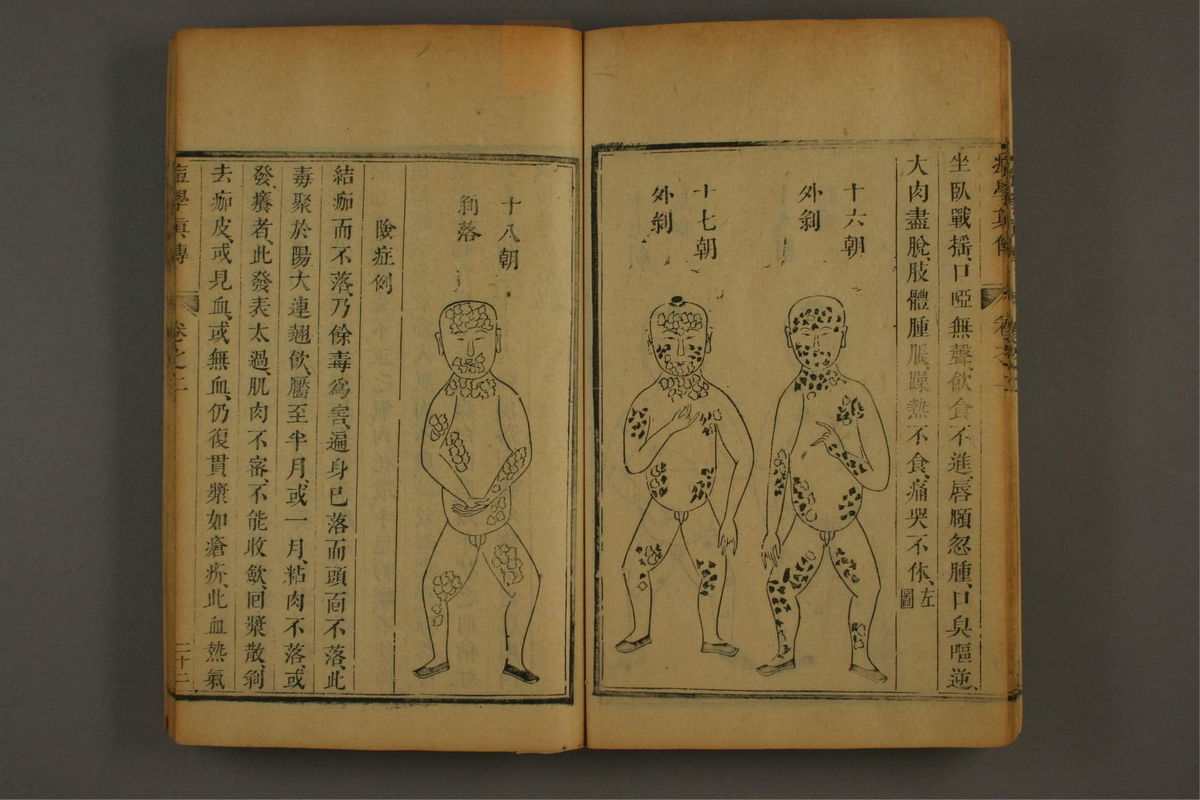 坐臥戰摇、口啞無聲、飲食不進、唇願忽腫、口臭嘔逆、
大肉盡脫、肢體腫脹、躁熱不食、痛哭不休、左圖
十六朝
外剝
十七朝
外剝
十八朝
剝落
險症例
結痂而不落、乃餘毒為害、遍身已落而頭面不落、此
毒聚於陽、大連翹飲、靨至半月、或一月、粘肉不落、或
發癢者、此發表太過、肌肉不密、不能收斂、囘漿散、剝
去痂皮、或見血、或無血、仍復貫漿如瘡疥、此血熱氣
痘學真傳 卷之二 二十二